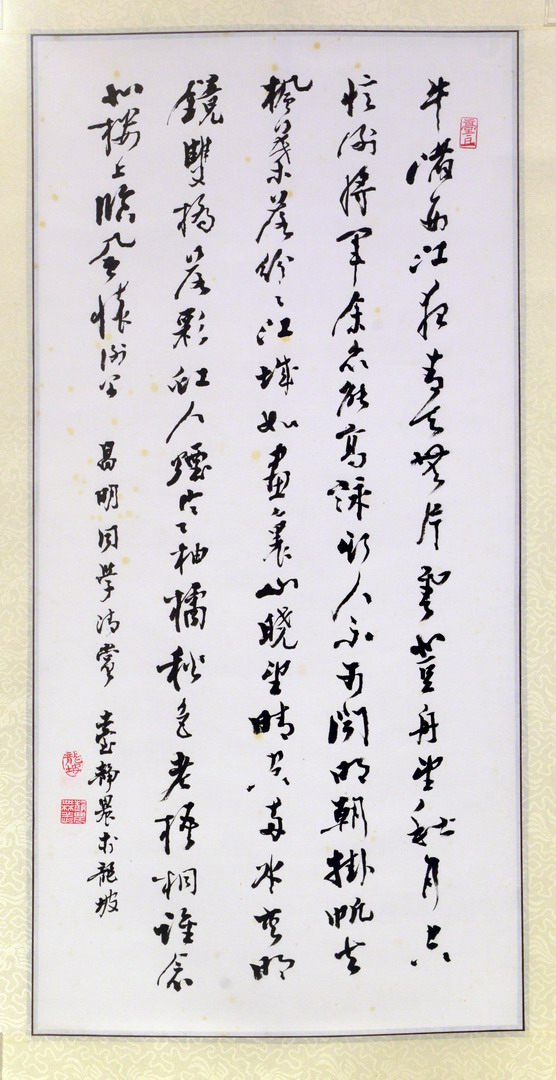 牛渚西江夜青天無片雲登舟望秋月空
憶謝將軍余亦能高詠斯人不可聞明朝掛帆去
楓葉落紛々江城如畫裏山曉望晴空兩水夾明
鏡雙橋落彩虹人煙寒柚橘秋色老梧桐誰念
北樓上臨風懷謝公 昌明同學清賞 臺靜農於龍坡